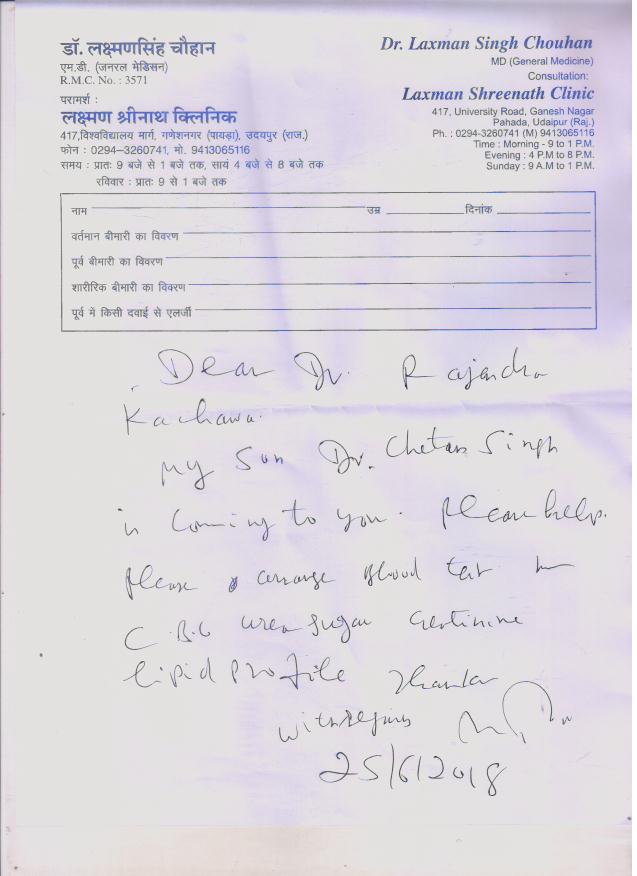 डॉ. लक्ष्मणसिंह चौहान
एम.डी. (जनरल मेडिसन)
R.M.C. No. : 3571
परामर्श :
लक्ष्मण श्रीनाथ क्लिनिक
417,विश्वविद्यालय मार्ग, गणेशनगर (पायड़ा), उदयपुर (राज.)
फोन : 0294–3260741, मो. 9413065116
समय : प्रातः 9 बजे से 1 बजे तक, सायं 4 बजे से 8 बजे तक
रविवार : प्रातः 9 से 1 बजे तक
Dr. Laxman Singh Chouhan
MD (General Medicine)
Consultation:
Laxman Shreenath Clinic
417, University Road, Ganesh Nagar
Pahada, Udaipur (Raj.)
Ph. : 0294-3260741 (M) 9413065116
Time : Morning - 9 to 1 P.M.
Evening : 4 P.M to 8 P.M.
Sunday : 9 A.M to 1 P.M.
नाम उम्र दिनांक
वर्तमान बीमारी का विवरण
पूर्व बीमारी का विवरण
शारीरिक बीमारी का विवरण
पूर्व में किसी दवाई से एलर्जी
Dear Dr. Rajendra
Kachawa.
My Son Dr. Chetan Singh
is Coming to you. Please help.
Please arrange Blood test
C.B.C urea sugar creatinine
lipid profile Thanks
with regards
25/6/2018